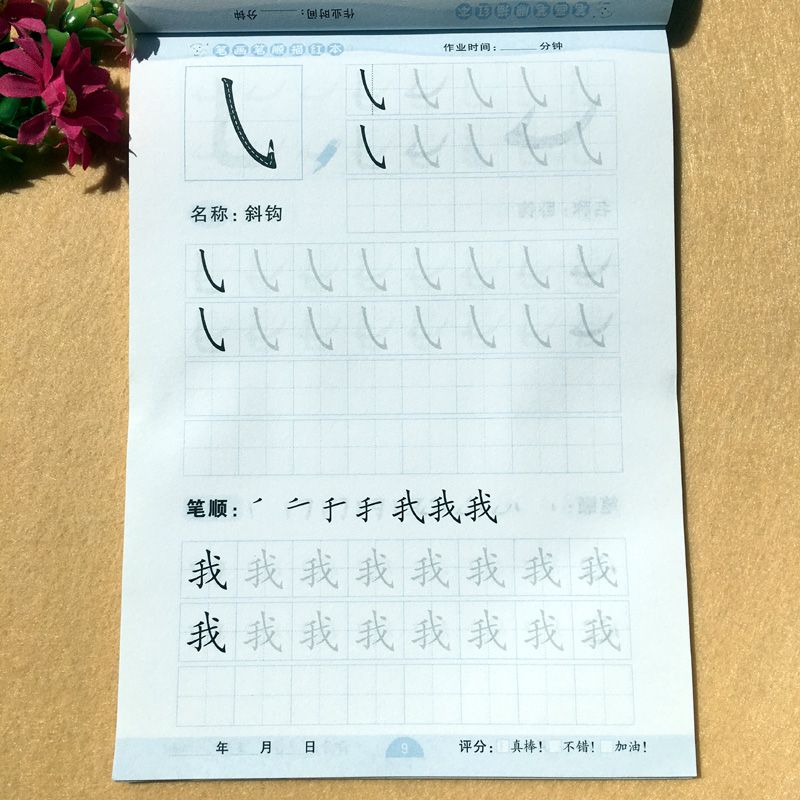 作业时间：______分钟
笔画笔顺描红本
作业时间：______分钟
名称：斜钩
笔顺：
我 我
我 我 我 我 我 我 我 我
我 我 我 我 我 我 我 我
年 月 日
9
评分： 真棒！ 不错！ 加油！